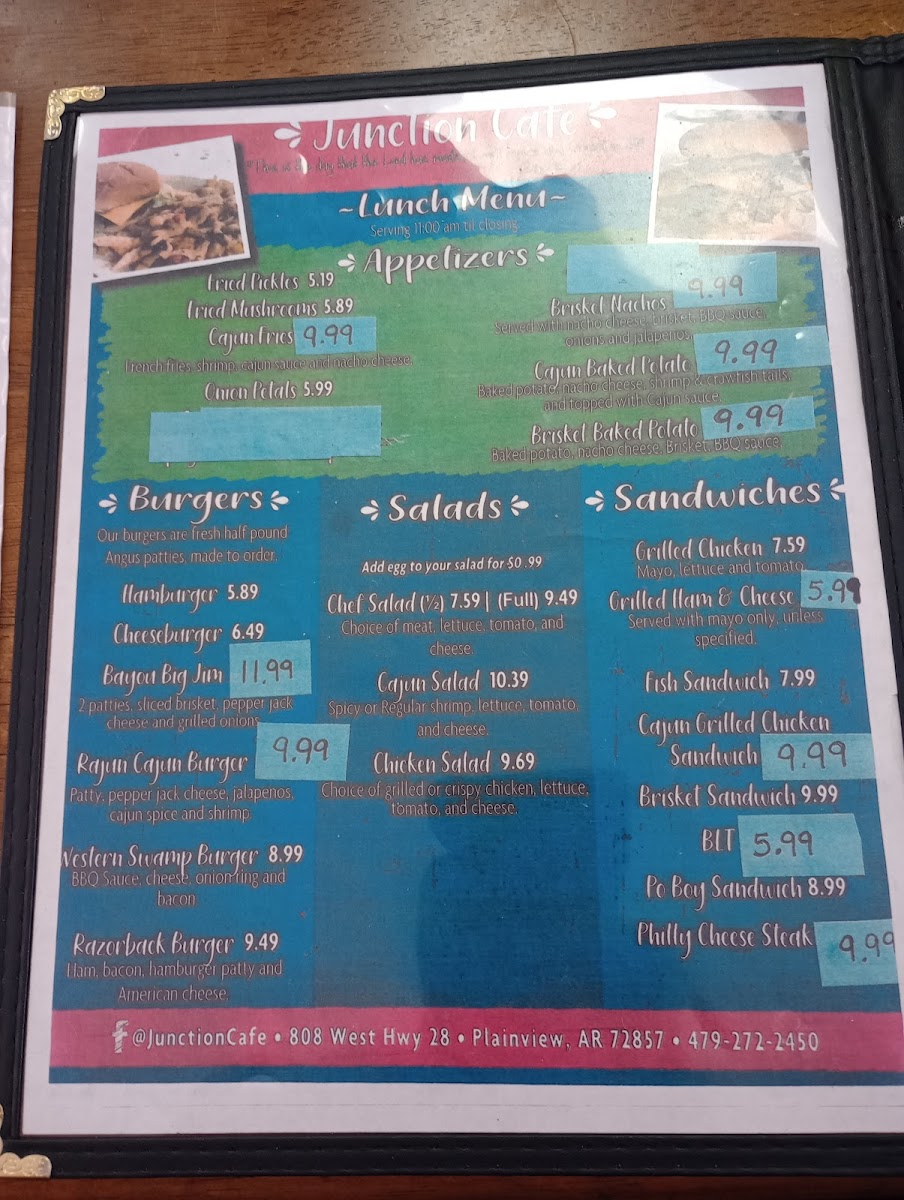 Junction Cafe
~Lunch Menu~
Serving 11:00 am til closing
Appetizers
Fried Pickles 5.19
Fried Mushrooms 5.89
Cajun Fries 9.99
French fries, shrimp, cajun sauce and nacho cheese
Onion Petals 5.99
Brisket Nachos 9.99
Served with nacho cheese, brisket, BBQ sauce,
onions and jalapenos
Cajun Baked Potato 9.99
Baked potato, nacho cheese, shrimp & crawfish tails,
and topped with Cajun sauce.
Brisket Baked Potato 9.99
Baked potato, nacho cheese, Brisket, BBQ sauce.
Burgers
Our burgers are fresh half pound
Angus patties, made to order.
Hamburger 5.89
Cheeseburger 6.49
Bayou Big Jim 11.99
2 patties, sliced brisket, pepper jack
cheese and grilled onions
Rajun Cajun Burger 9.99
Patty, pepper jack cheese, jalapenos,
cajun spice and shrimp
Western Swamp Burger 8.99
BBQ Sauce, cheese, onion ring and
bacon
Razorback Burger 9.49
Ham, bacon, hamburger patty and
American cheese.
Salads
Add egg to your salad for $0.99
Chef Salad (½) 7.59 | (Full) 9.49
Choice of meat, lettuce, tomato, and
cheese.
Cajun Salad 10.39
Spicy or Regular shrimp, lettuce, tomato,
and cheese.
Chicken Salad 9.69
Choice of grilled or crispy chicken, lettuce,
tomato, and cheese.
Sandwiches
Grilled Chicken 7.59
Mayo, lettuce and tomato
Grilled Ham & Cheese 5.99
Served with mayo only, unless
specified.
Fish Sandwich 7.99
Cajun Grilled Chicken
Sandwich 9.99
Brisket Sandwich 9.99
BLT 5.99
Po Boy Sandwich 8.99
Philly Cheese Steak 9.99
f @JunctionCafe • 808 West Hwy 28 • Plainview, AR 72857 • 479-272-2450